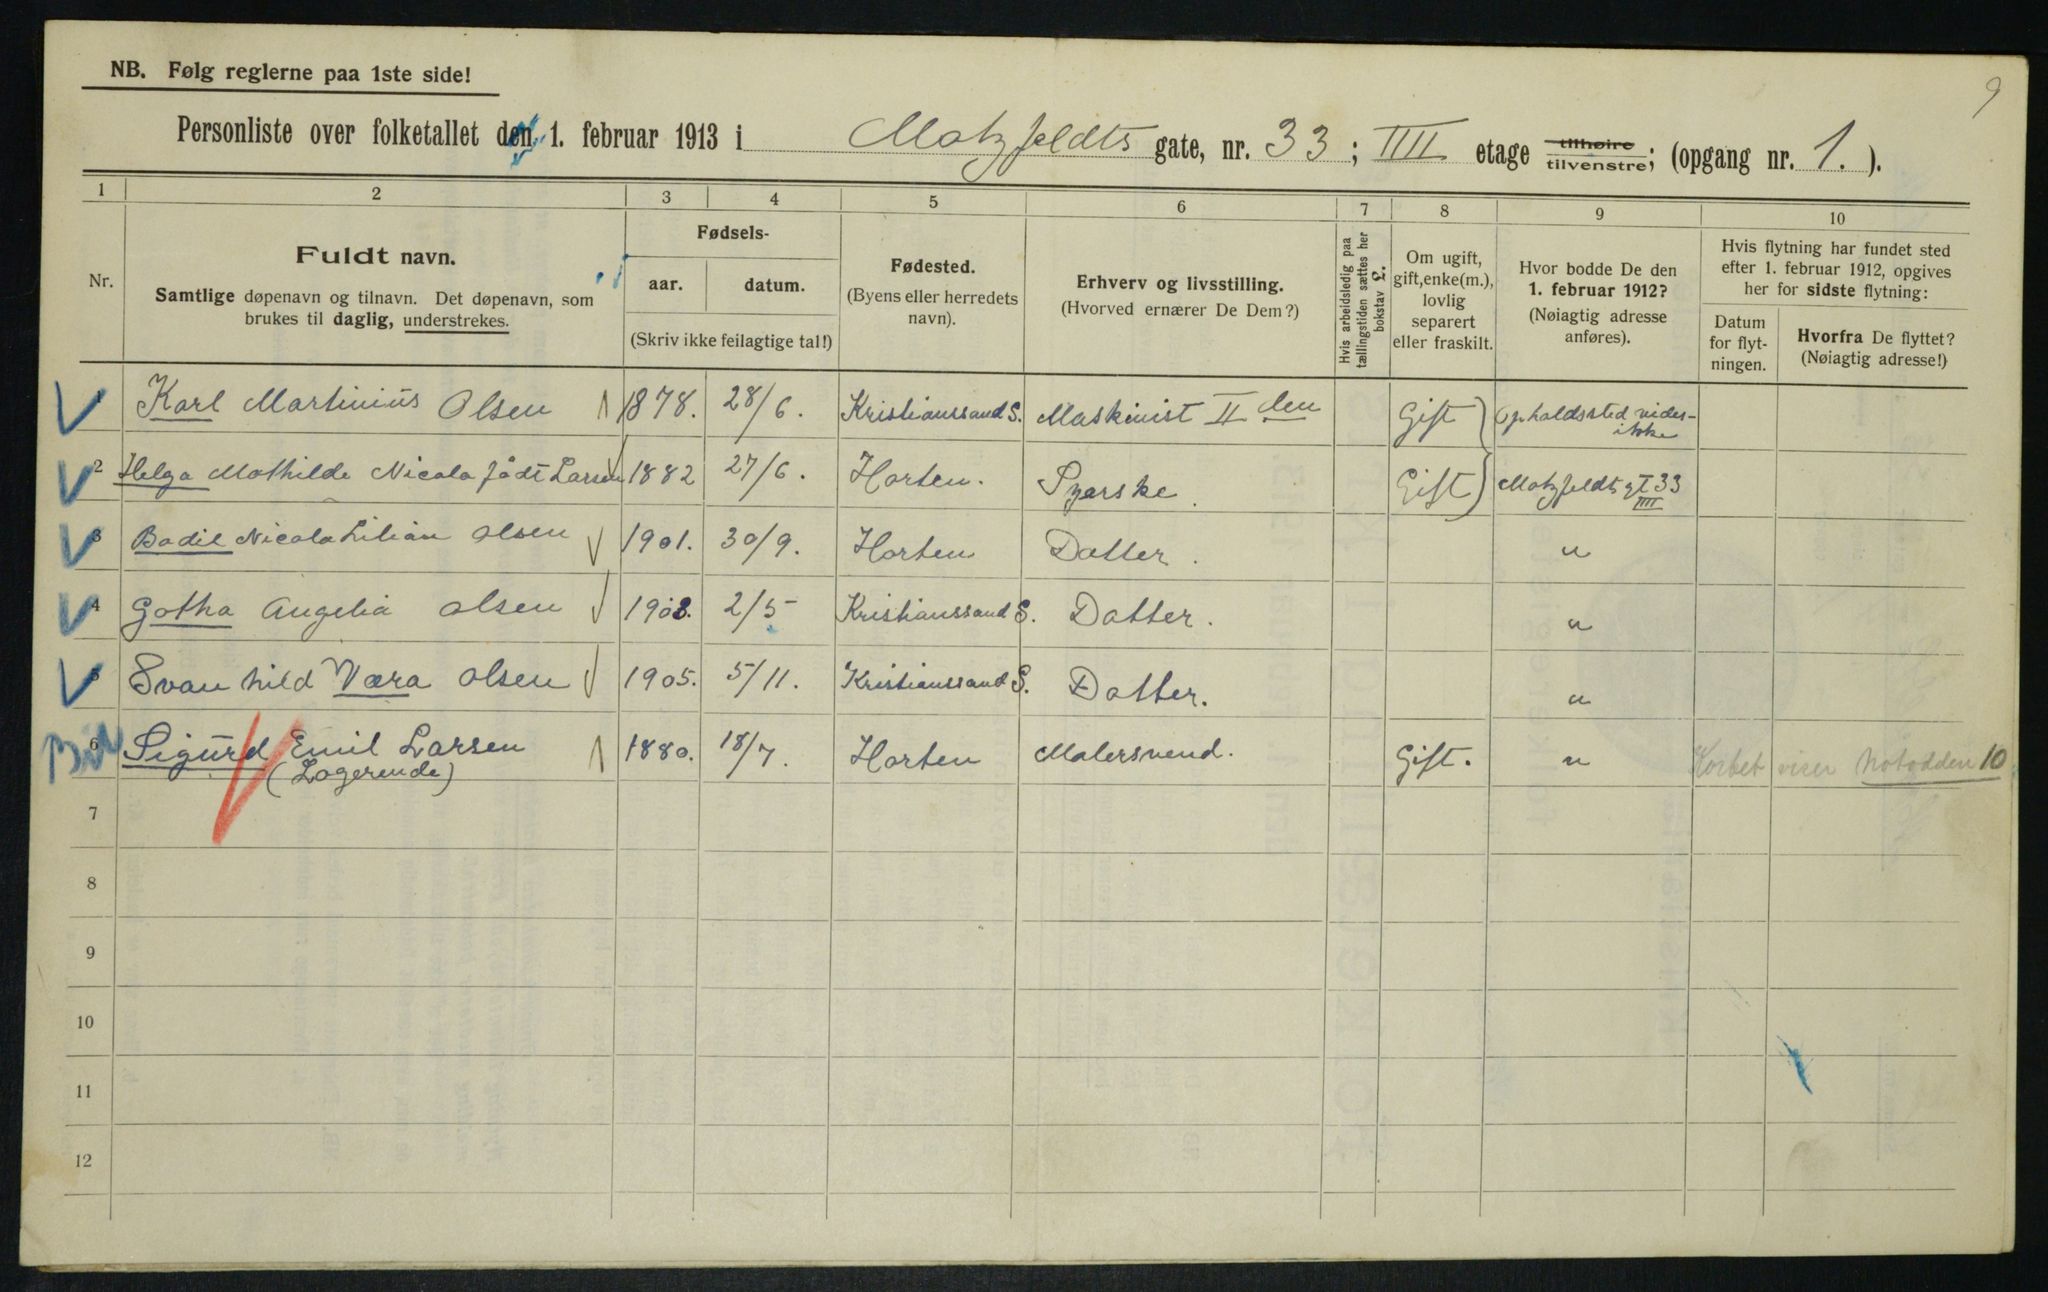 9
NB. Følg reglerne paa 1ste side!
Personliste over folketallet den 1. februar 1913 i Motzfeldts gate, nr. 33; IIII etage tilhøire tilvenstre; (opgang nr. 1. ).
1 2 3 4 5 6 7 8 9 10
Nr.
Fuldt navn.
Samtlige døpenavn og tilnavn. Det døpenavn, som
brukes til daglig, understrekes.
Fødsels-
aar. datum.
(Skriv ikke feilagtige tal!)
Fødested.
(Byens eller herredets
navn).
Erhverv og livsstilling.
(Hvorved ernærer De Dem?)
Hvis arbeidsledig paa
tællingstiden sættes her
bokstav £.
Om ugift,
gift, enke(m.),
lovlig
separert
eller fraskilt.
Hvor bodde De den
1. februar 1912?
(Nøiagtig adresse
anføres).
Hvis flytning har fundet sted
efter 1. februar 1912, opgives
her for sidste flytning:
Datum
for flyt-
ningen.
Hvorfra De flyttet?
(Nøiagtig adresse!)
1 Karl Martinius Olsen 1878. 28/6. Kristianssand S. Maskinist II den Gift Opholdssted vides-
ikke
2 Helga Mathilde Nicola født Larsen 1882 27/6. Horten. Syerske. Gift Motzfeldts gt 33
IIII
3 Bodil Nicola Lilian Olsen 1901. 30/9. Horten Datter. "
4 Gotha Angelia Olsen 1903. 2/5 Kristianssand S. Datter. "
5 Svanhild Væra Olsen 1905. 5/11. Kristianssand S. Datter. "
6 Sigurd Emil Larsen 1880. 18/7. Horten Malersvend. Gift. " Kortet viser Notodden 10
(Logerende)
7
8
9
10
11
12